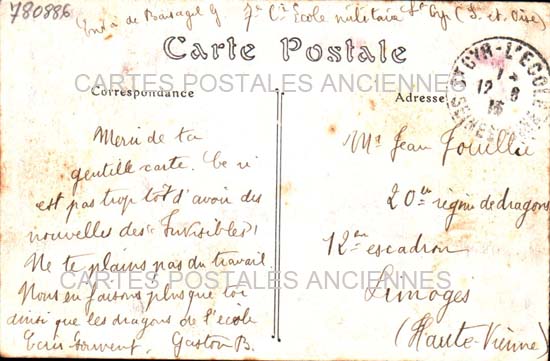 780886
Envoi de Basagel G. 7e Cie école militaire St Cyr (S. et Oise)
Carte Postale
CARTES POSTALES ANCIENNES
Correspondance
Adresse
ST CYR-L'ECOLE
12 - 8
SEINE
Merci de ta
gentille carte. Ce n'
est pas trop tôt d'avoir des
nouvelles des "Invisibles"!
Ne te plains pas du travail.
Nous en faisons plus que toi
ainsi que les dragons de l'école
Ecris souvent. Gaston B.
Mr Jean Fouillé
20ème régim de dragons
12ème escadron
CARTES POSTALES ANCIENNES
Limoges
(Haute-Vienne)